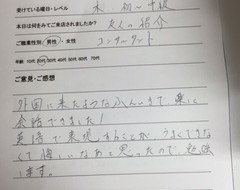 受けている曜日・レベル 木 初〜中級
本日は何をみてご来店されましたか? 友人の紹介
ご職業 性別 男性・女性 コンサルタント
年齢 10代 20代 30代 40代 50代 60代 70代
ご意見・ご感想
外国に来たようなふんいきで、楽しく
会話できました!
英語で表現することが、うまくできな
くて悔しいなあと思ったので、勉強
します。